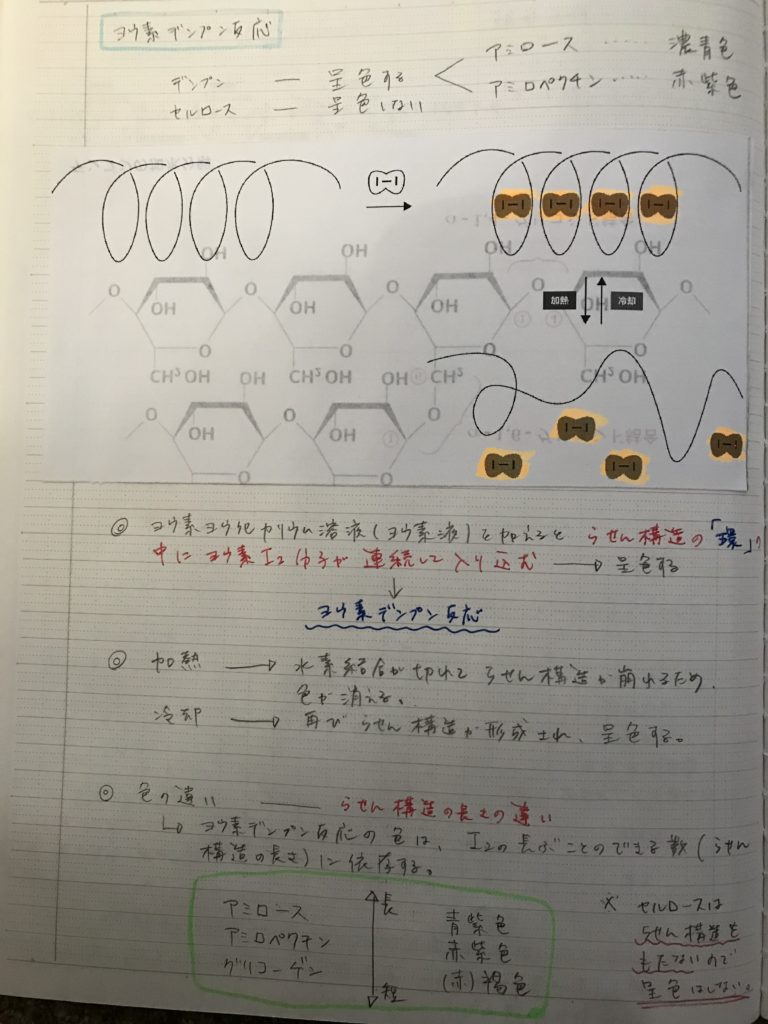 ヨウ素デンプン反応
デンプン ― 呈色する < アミロース …… 濃青色
アミロペクチン …… 赤紫色
セルロース ― 呈色しない
I-I
I-I I-I I-I I-I
加熱 冷却
I-I I-I I-I I-I
◎ ヨウ素ヨウ化カリウム溶液(ヨウ素液)を加えると らせん構造の「環」の
中に ヨウ素 I2 分子が 連続して入り込む → 呈色する
↓
ヨウ素デンプン反応
◎ 加熱 → 水素結合が切れて らせん構造が崩れるため、
色が消える。
冷却 → 再び らせん構造が形成され、呈色する。
◎ 色の違い ― らせん構造の長さの違い
↳ ヨウ素デンプン反応の色は、I2の並ぶことのできる数(らせん
構造の長さ)に依存する。
アミロース 長 青紫色
アミロペクチン 赤紫色
グリコーゲン 短 (赤)褐色
※ セルロースは
らせん構造を
もたないので
呈色はしない。